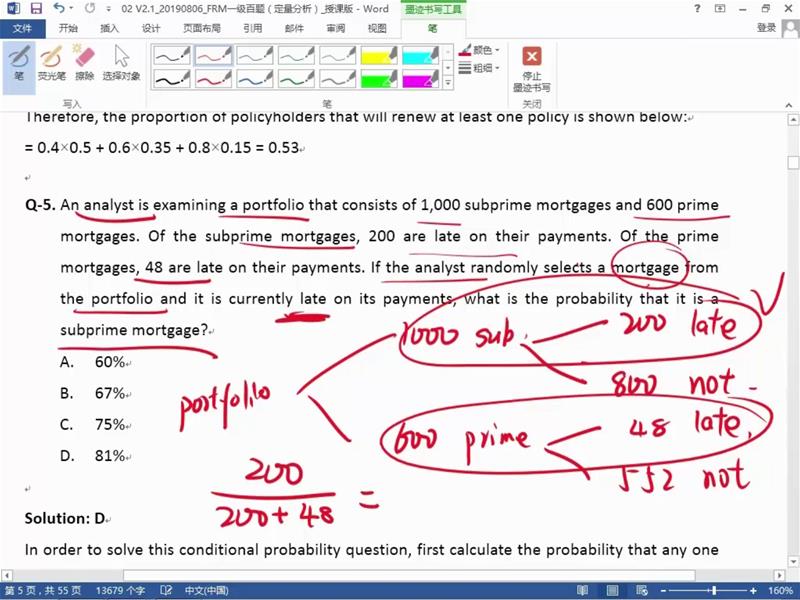 02 V2.1_20190806_FRM一级百题（定量分析）_授课版 - Word
墨迹书写工具
文件 开始 插入 设计 页面布局 引用 邮件 审阅 视图 笔 登录
笔 荧光笔 擦除 选择对象 颜色 粗细 停止墨迹书写
写入 笔 关闭
Therefore, the proportion of policyholders that will renew at least one policy is shown below:
= 0.4×0.5 + 0.6×0.35 + 0.8×0.15 = 0.53
Q-5. An analyst is examining a portfolio that consists of 1,000 subprime mortgages and 600 prime
mortgages. Of the subprime mortgages, 200 are late on their payments. Of the prime
mortgages, 48 are late on their payments. If the analyst randomly selects a mortgage from
the portfolio and it is currently late on its payments, what is the probability that it is a
subprime mortgage?
1000 sub. 200 late
A. 60%
800 not
B. 67%
portfolio
C. 75%
600 prime 48 late
D. 81%
552 not
200
200 + 48 =
Solution: D
In order to solve this conditional probability question, first calculate the probability that any one
第 5 页，共 55 页 13679 个字 中文(中国) 160%